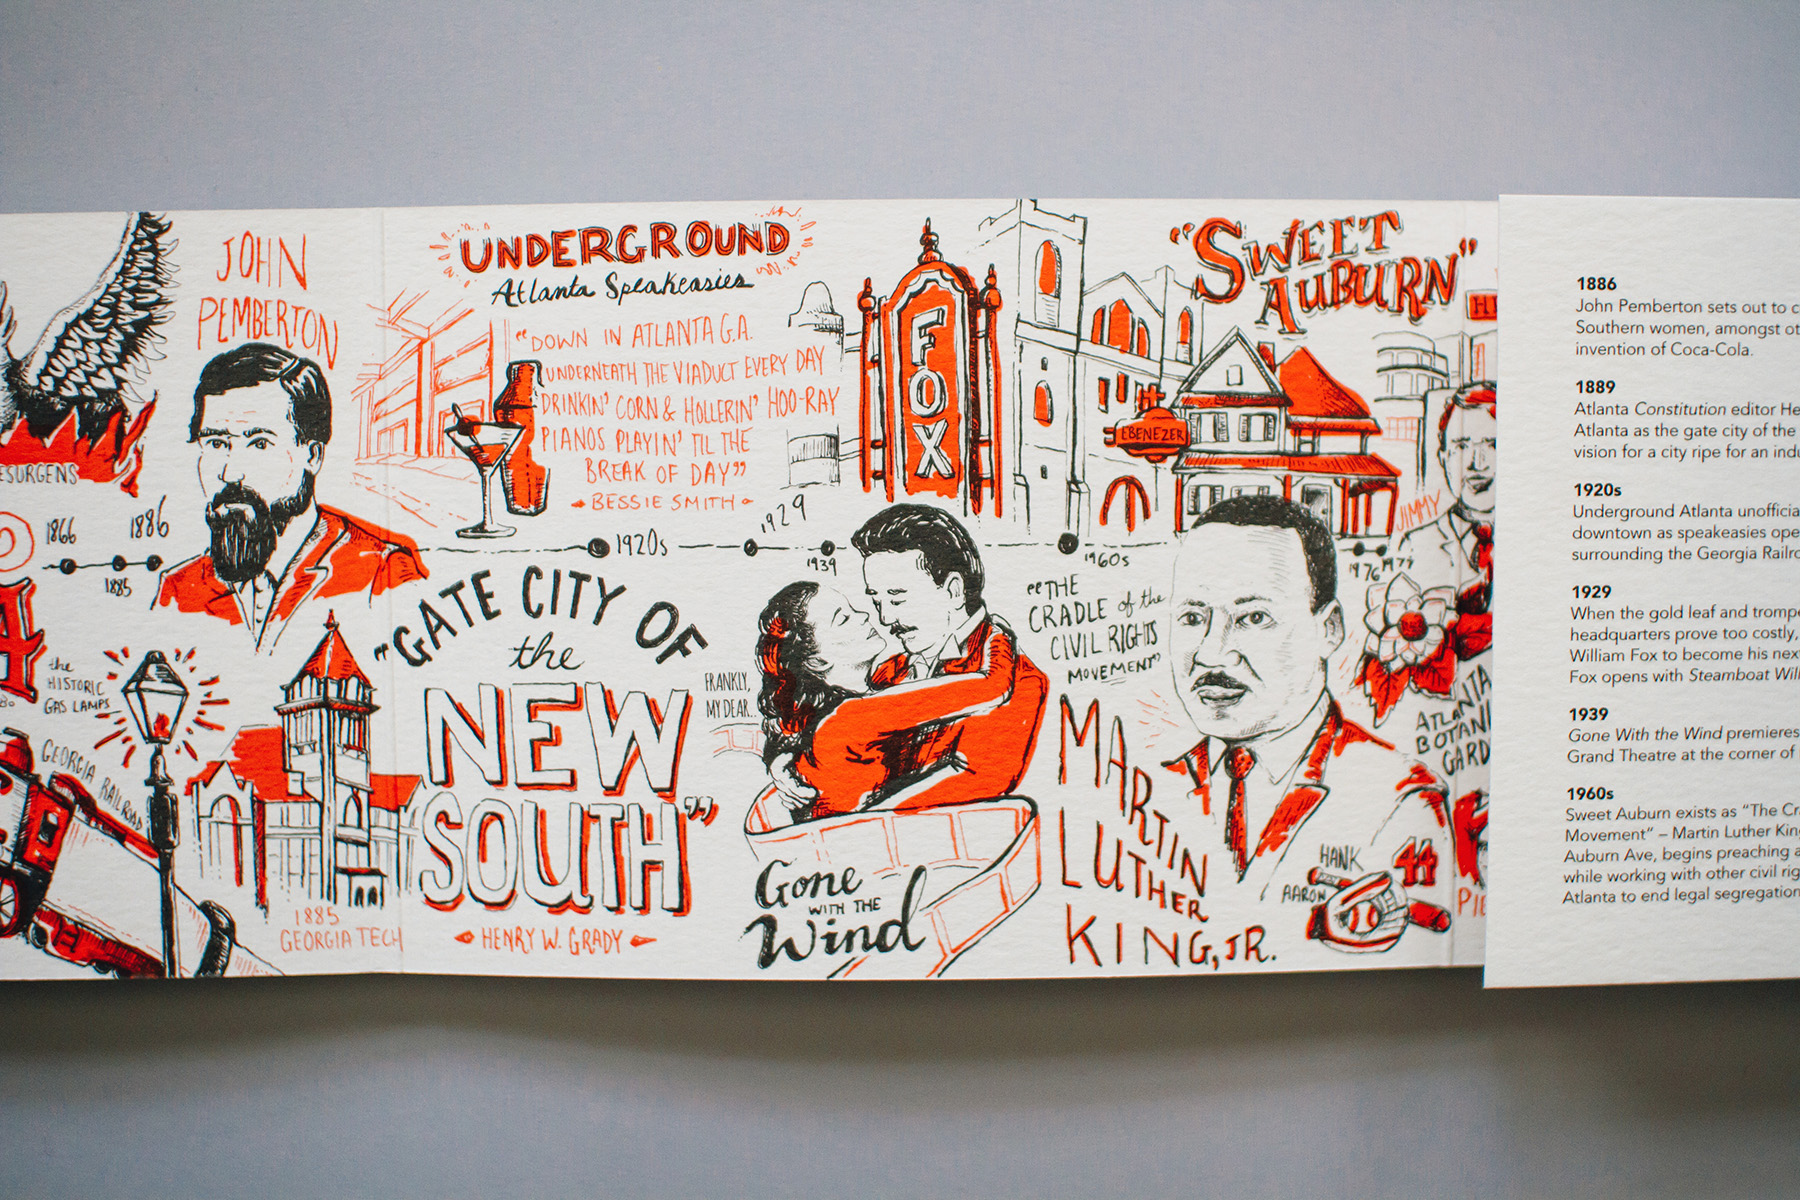 JOHN
PEMBERTON
1866
1886
1885
the
HISTORIC
GAS LAMPS
GEORGIA RAILROAD
1885
GEORGIA TECH
UNDERGROUND
Atlanta Speakeasies
"DOWN IN ATLANTA G.A.
UNDERNEATH THE VIADUCT EVERY DAY
DRINKIN' CORN & HOLLERIN' HOO-RAY
PIANOS PLAYIN' TIL THE
BREAK OF DAY"
BESSIE SMITH
1920s
"GATE CITY OF
the
NEW
SOUTH"
HENRY W. GRADY
1929
1939
FRANKLY,
MY DEAR...
Gone
WITH THE
Wind
FOX
EBENEZER
"SWEET
AUBURN"
1960s
"THE
CRADLE of the
CIVIL RIGHTS
MOVEMENT"
MARTIN
LUTHER
KING, JR.
HANK
AARON
44
JIMMY
1976
ATLANTA
BOTANI
GARD
1886
John Pemberton sets out to c
Southern women, amongst ot
invention of Coca-Cola.
1889
Atlanta Constitution editor He
Atlanta as the gate city of the
vision for a city ripe for an indu
1920s
Underground Atlanta unofficia
downtown as speakeasies ope
surrounding the Georgia Railro
1929
When the gold leaf and trompe
headquarters prove too costly,
William Fox to become his next
Fox opens with Steamboat Will
1939
Gone With the Wind premieres
Grand Theatre at the corner of
1960s
Sweet Auburn exists as "The Cra
Movement" – Martin Luther King
Auburn Ave, begins preaching a
while working with other civil rig
Atlanta to end legal segregation